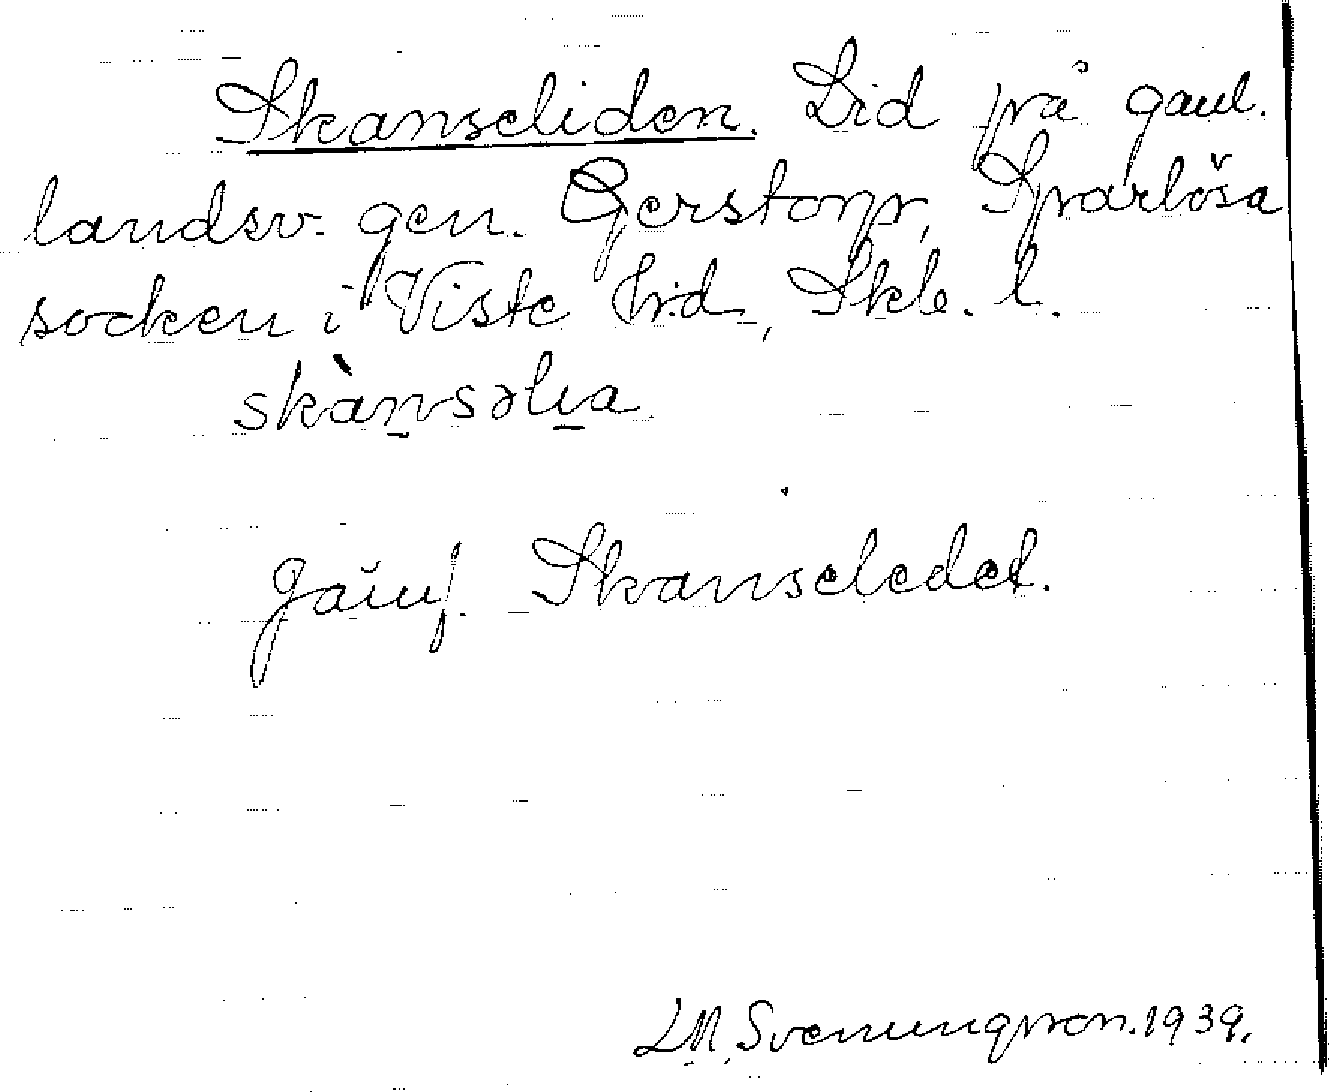 Skanseliden. Lid på gaml.
landsv. gen. Gerstorp, Sparlösa
socken i Viste hrd, Skb. l.
skànsəlia.
Jämf. Skanseledet.
L.M. Svenungsson. 1939.